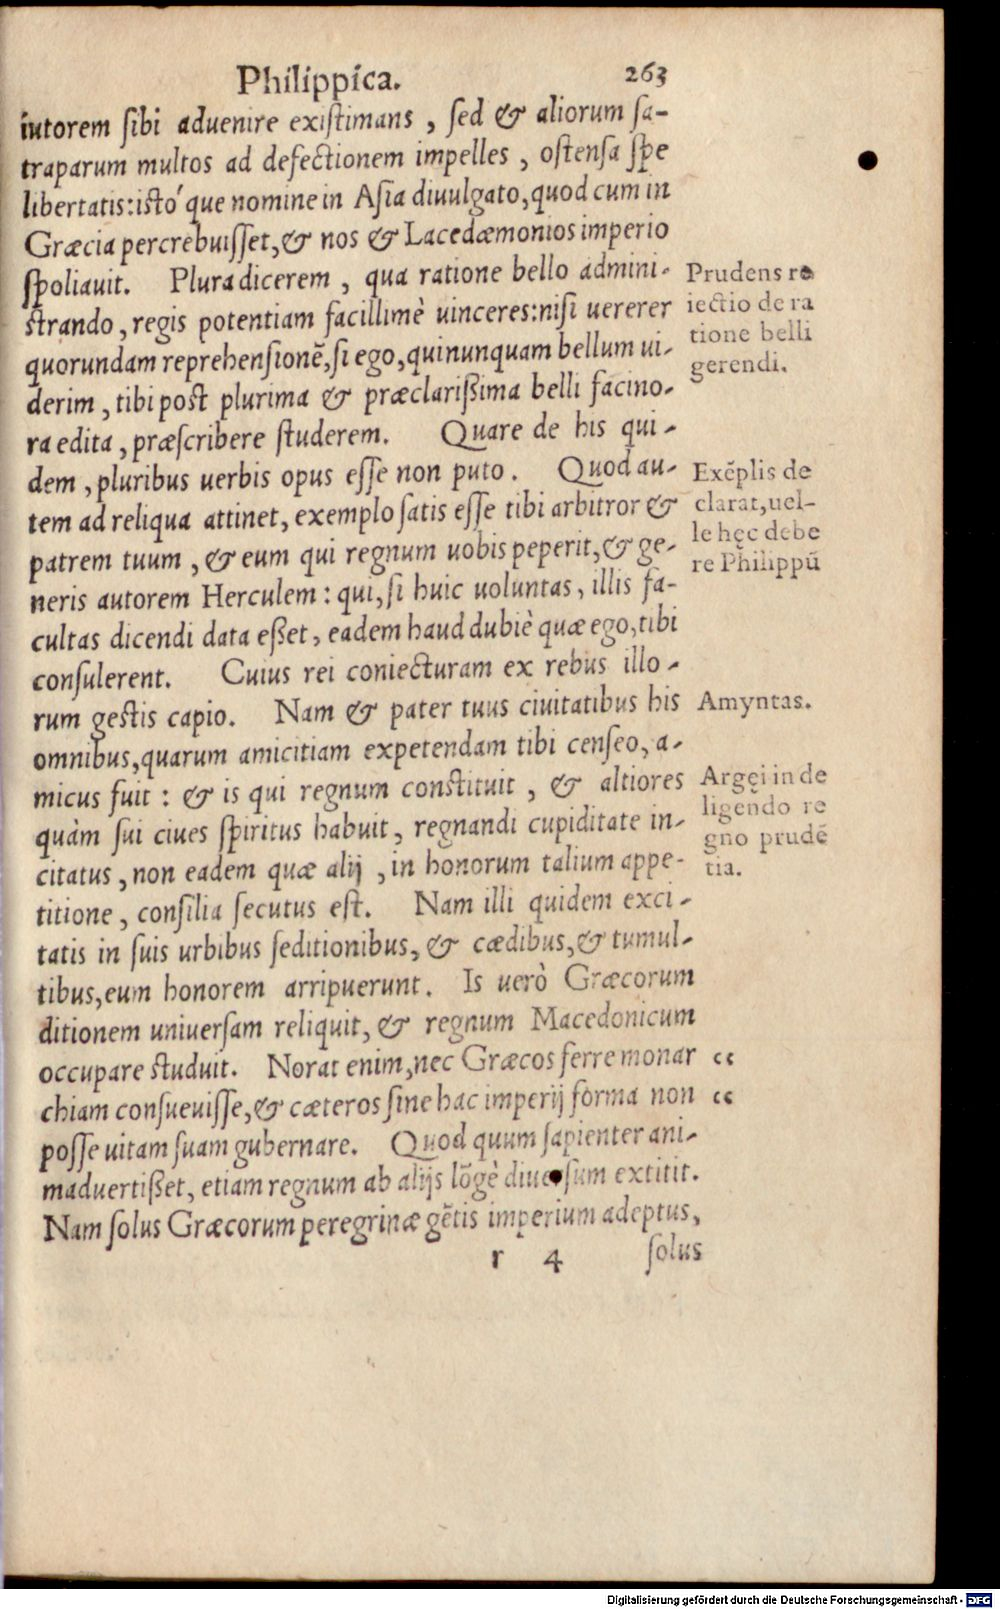 Philippica. 263
iutorem ſibi aduenire exiſtimans, ſed & aliorum ſa-
traparum multos ad defectionem impelles, oſtenſa ſpe
libertatis: isto´que nomine in Aſia diuulgato, quod cum in
Græcia percrebuiſſet, & nos & Lacedæmonios imperio
ſpoliauit. Plura dicerem, qua ratione bello admini-
ſtrando, regis potentiam facillimè uinceres: niſi uererer
quorundam reprehenſionē, ſi ego, qui nunquam bellum ui-
derim, tibi poſt plurima & præclariſsima belli facino-
ra edita, præſcribere ſtuderem. Quare de his qui-
dem, pluribus uerbis opus eſſe non puto. Quod au-
tem ad reliqua attinet, exemplo ſatis eſſe tibi arbitror &
patrem tuum, & eum qui regnum uobis peperit, & ge-
neris autorem Herculem: qui, ſi huic uoluntas, illis fa-
cultas dicendi data eſset, eadem haud dubiè quæ ego, tibi
conſulerent. Cuius rei coniecturam ex rebus illo-
rum geſtis capio. Nam & pater tuus ciuitatibus his
omnibus, quarum amicitiam expetendam tibi cenſeo, a-
micus fuit: & is qui regnum conſtituit, & altiores
quàm ſui ciues ſpiritus habuit, regnandi cupiditate in-
citatus, non eadem quæ alij, in honorum talium appe-
titione, conſilia ſecutus eſt. Nam illi quidem exci-
tatis in ſuis urbibus ſeditionibus, & cædibus, & tumul-
tibus, eum honorem arripuerunt. Is uerò Græcorum
ditionem uniuerſam reliquit, & regnum Macedonicum
occupare ſtuduit. Norat enim, nec Græcos ferre monar
chiam conſueuiſſe, & cæteros ſine hac imperij forma non
poſſe uitam ſuam gubernare. Quod quum ſapienter ani-
maduertiſset, etiam regnum ab alijs lōgè diuerſum extitit.
Nam ſolus Græcorum peregrinæ gētis imperium adeptus,
r 4 ſolus
Prudens re
iectio de ra
tione belli
gerendi.
Exēplis de
clarat, uel-
le hęc debe
re Philippū
Amyntas.
Argęi in de
ligendo re
gno prudē
tia.
“
“
Digitalisierung gefördert durch die Deutsche Forschungsgemeinschaft - DFG